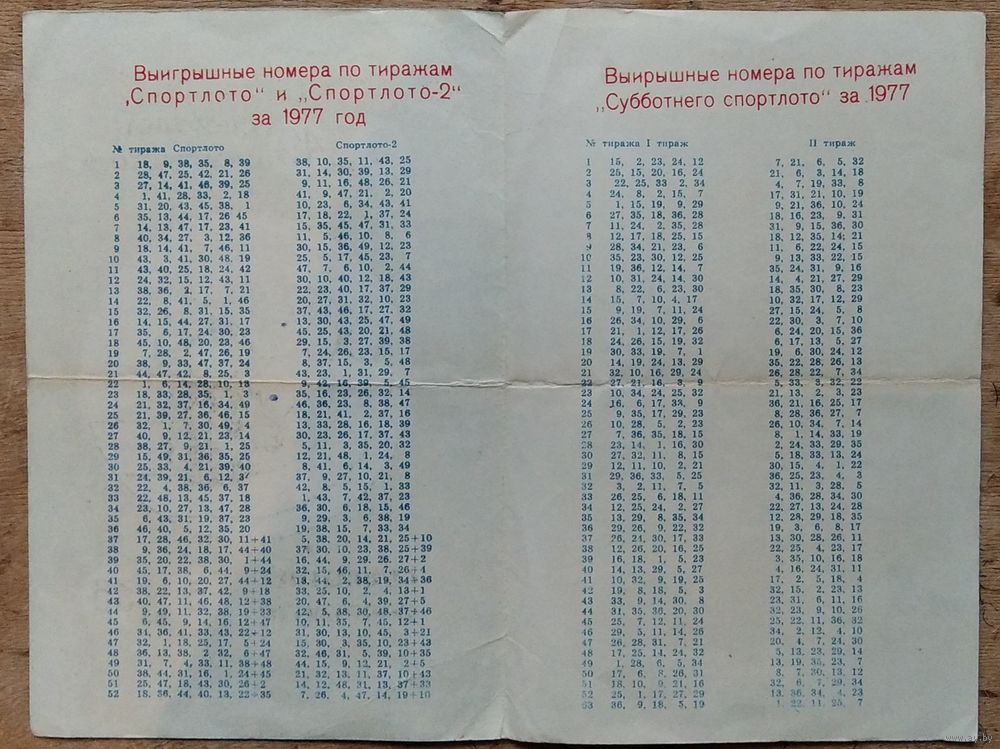 Выигрышные номера по тиражам
„Спортлото" и „Спортлото-2"
за 1977 год
№ тиража Спортлото Спортлото-2
1 18, 9, 38, 35, 8, 39 38, 10, 35, 11, 43, 25
2 28, 47, 25, 42, 21, 26 31, 14, 30, 39, 13, 29
3 27, 14, 41, 46, 39, 25 9, 11, 16, 48, 26, 21
4 1, 41, 28, 33, 2, 18 41, 9, 47, 21, 2, 20
5 31, 20, 43, 45, 38, 1 10, 23, 6, 34, 43, 41
6 35, 13, 44, 17, 26 45 17, 18, 22, 1, 37, 24
7 14, 13, 47, 17, 23, 41 15, 35, 45, 47, 31, 33
8 40, 34, 27, 3, 12, 36 11, 5, 46, 10, 8, 6
9 18, 14, 41, 7, 46, 11 30, 15, 36, 49, 12, 23
10 43, 3, 41, 30, 48, 19 25, 5, 17, 45, 23, 7
11 43, 40, 25, 18, 24, 42 47, 7, 6, 10, 2, 44
12 24, 32, 15, 12, 43, 11 30, 10, 40, 12, 18, 43
13 38, 36, 2, 17, 7, 21 22, 23, 40, 17, 37, 29
14 22, 8, 41, 5, 1, 46 20, 27, 31, 32, 10, 23
15 32, 26, 8, 31, 15, 35 37, 43, 46, 17, 27, 32
16 14, 15, 44, 27, 31, 17 13, 30, 43, 25, 47, 49
17 35, 6, 17, 24, 30, 23 45, 25, 43, 20, 21, 48
18 45, 10, 48, 20, 23, 46 29, 15, 3, 27, 39, 38
19 7, 28, 2, 47, 26, 19 7, 24, 26, 23, 15, 17
20 38, 9, 33, 47, 37, 24 8, 37, 15, 3, 5, 48
21 44, 47, 42, 8, 25, 3 43, 23, 1, 31, 29, 7
22 1, 6, 14, 28, 10, 18 9, 42, 16, 39, 5, 45
23 18, 33, 28, 35, 1, 3 35, 16, 23, 26, 32, 14
24 21, 32, 37, 16, 34, 49 46, 36, 23, 8, 38, 47
25 21, 39, 27, 36, 46, 15 18, 21, 41, 2, 37, 16
26 32, 1, 7, 30, 49, 4 13, 33, 28, 16, 18, 39
27 40, 9, 12, 21, 23, 14 30, 23, 26, 17, 37, 43
28 38, 27, 9, 21, 1, 25 5, 11, 3, 35, 20, 32
29 15, 49, 31, 36, 35, 25 12, 21, 48, 1, 24, 8
30 25, 33, 4, 21, 39, 40 8, 41, 6, 14, 3, 49
31 24, 39, 21, 6, 12, 37, 9, 27, 10, 21, 8
32 22, 4, 38, 36, 6, 37 42, 8, 5, 15, 1, 33
33 22, 48, 13, 45, 37, 18 1, 43, 7, 42, 37, 23
34 23, 10, 27, 13, 47, 28 36, 30, 6, 18, 15, 46
35 6, 43, 31, 19, 37, 23 9, 29, 3, 6, 38, 19
36 46, 40, 5, 12, 35, 20 19, 38, 15, 7, 33, 34
37 17, 28, 46, 32, 30, 11+41 5, 38, 20, 14, 21, 25+10
38 9, 36, 24, 18, 17, 44+40 37, 30, 10, 23, 38, 25+39
39 35, 20, 22, 38, 30, 1+44 16, 44, 9, 29, 26, 27+2
40 45, 17, 38, 6, 44, 9+24 32, 15, 46, 11, 7, 26+4
41 19, 6, 10, 20, 27, 44+12 13, 44, 2, 38, 19, 34+36
42 38, 22, 13, 37, 42, 9+18 33, 25, 10, 2, 4, 13+1
43 40, 47, 11, 46, 48, 12+38 20, 47, 6, 4, 39, 27+5
44 9, 49, 11, 32, 38, 19+33 42, 5, 38, 30, 48, 37+46
45 6, 45, 9, 14, 16, 12+47 10, 11, 35, 7, 45, 12+1
46 31, 36, 41, 33, 43, 22+12 31, 30, 13, 10, 45, 3+21
47 32, 1, 18, 25, 17, 5+24 15, 30, 3, 35, 10, 23+43
48 36, 13, 38, 2, 32, 6+47 32, 46, 31, 5, 39, 10+35
49 31, 7, 4, 33, 11, 38+48 44, 15, 9, 12, 21, 2+5
50 38, 44, 31, 16, 1, 24+45 21, 32, 13, 11, 37, 10+43
51 25, 47, 18, 43, 30, 26+2 14, 12, 48, 31, 13, 37+33
52 18, 36, 44, 40, 13, 22+35 7, 26, 4, 47, 14, 19+10
Выирышные номера по тиражам
„Субботнего спортлото" за 1977
№ тиража I тираж II тираж
1 15, 2, 23, 24, 12 7, 21, 6, 5, 32
2 25, 15, 20, 16, 24 21, 6, 3, 14, 18
3 22, 25, 33 2, 34 4, 7, 19, 33, 8
4 24, 8, 2, 15, 7 17, 31, 21, 10, 19
5 1, 15, 19, 9, 29 9, 21, 36, 10, 24
6 27, 35, 18, 36, 28 18, 16, 23, 9, 31
7 11, 24, 2, 35, 28 31, 9, 15, 36, 30
8 12, 17, 18, 25, 15 18, 12, 35, 14, 21
9 28, 34, 21, 23, 6 11, 6, 22, 24, 15
10 35, 23, 30, 12, 25 9, 13, 33, 22, 15
11 19, 36, 12, 14, 7 35, 24, 31, 9, 16
12 10, 31, 24, 14, 30 14, 4, 21, 27, 29
13 8, 22, 6, 23, 30 18, 35, 30, 8, 23
14 15, 7, 10, 4, 17 10, 32, 17, 12, 29
15 9, 19, 7, 11, 24 27, 15, 24, 5, 8
16 26, 34, 10, 29, 6 22, 30, 3, 7, 10
17 21, 1, 12, 17, 26 6, 24, 20, 15, 36
18 24, 26, 15, 19, 32 6, 17, 13, 5, 27
19 30, 33, 19, 7, 1 19, 6, 30, 24, 12
20 14, 19, 24, 13, 29 35, 22, 28, 26, 13
21 32, 10, 16, 29, 24 26, 28, 22, 7, 34
22 27, 21, 16, 3, 9 5, 33, 3, 32, 22
23 10, 34, 24, 25, 32 21, 13, 2, 3, 23
24 16, 6, 17, 33, 9 36, 21, 16, 25, 17
25 9, 35, 17, 29, 23 8, 28, 36, 27, 7
26 10, 28, 5, 2, 23 26, 10, 34, 7, 14
27 7, 36, 35, 18, 15 8, 1, 14, 33, 19
28 23, 14, 1, 16, 30 2, 24, 33, 29, 35
30 27, 32, 11, 8, 15 5, 18, 33, 13, 24
29 12, 11, 10, 2, 21 30, 15, 4, 1, 22
31 29, 36, 33, 5, 25 36, 25, 23, 4, 3
32 3, 2, 11, 7, 5 32, 11, 3, 28, 5
33 26, 25, 6, 18, 11 4, 36, 28, 34, 30
34 12, 25, 24, 2, 27 22, 27, 13, 24, 28
35 13, 29, 8, 35, 34 12, 28, 29, 18, 35
36 29, 26, 9, 22, 32 19, 3, 6, 8, 17
37 26, 24, 30, 17, 33 13, 30, 28, 26, 11
38 12, 26, 20, 16, 25 22, 25, 4, 23, 17
39 16, 18, 1, 5, 23 3, 35, 10, 16, 18
40 14, 13, 29, 5, 27 4, 16, 24, 31, 11
41 10, 32, 9, 19, 25 17, 2, 5, 18, 4
42 19, 8, 18, 5, 3 32, 15, 2, 23, 13
43 33, 9, 14, 30, 8 23, 31, 6, 11, 16
44 31, 35, 36, 20, 30 32, 23, 9, 10, 26
45 25, 7, 12, 11, 24 25, 22, 11, 36, 32
46 29, 5, 11, 14, 26 34, 2, 12, 4, 10
47 26, 28, 31, 7, 21 20, 4, 7, 24, 30
48 17, 25, 14, 24, 32 5, 13, 23, 29, 14
49 1, 28, 6, 5, 34 13, 19, 35, 23, 7
50 17, 6, 8, 26, 31 8, 7, 30, 13, 12
51 18, 10, 9, 21, 16 32, 6, 7, 29, 34
52 25, 1, 17, 27, 29 13, 36, 34, 4, 23
53 36, 9, 18, 5, 19 1, 22, 11, 25, 7
www.ay.by